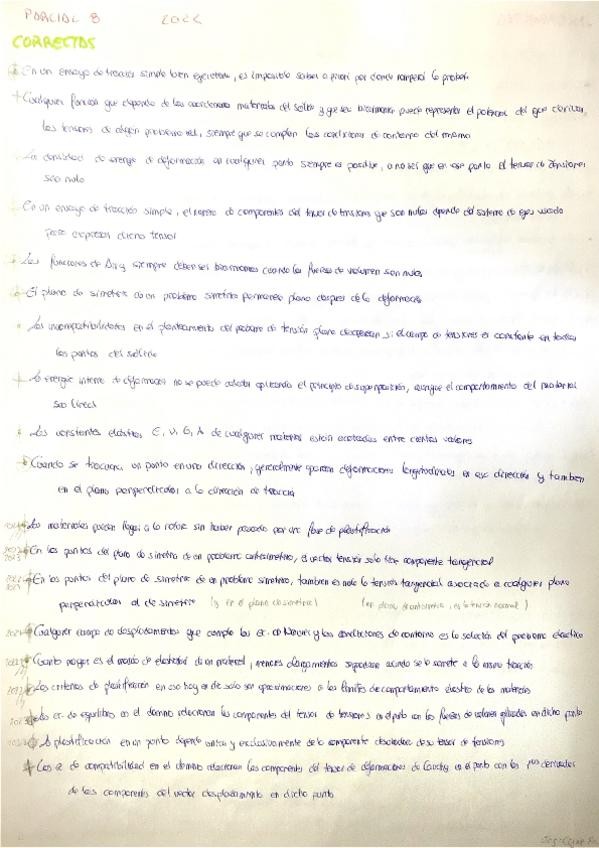 PARCIAL B 2022
CORRECTAS
En un ensayo de tracción simple bien ejecutado, es imposible saber a priori por donde romperá la probeta
+ Cualquier función que dependa de las coordenadas materiales del sólido y que sea biarmónica puede representar el potencial del que derivan
las tensiones de algún problema real, siempre que se cumplan las condiciones de contorno del mismo
La densidad de energía de deformación en cualquier punto siempre es positiva, a no ser que en ese punto el tensor de tensiones
sea nulo
En un ensayo de tracción simple, el número de componentes del tensor de tensiones que son nulas depende del sistema de ejes usado
para expresar dicho tensor
Las funciones de Airy siempre deben ser biarmónicas cuando las fuerzas de volumen son nulas
El plano de simetría de un problema simétrico permanece plano después de la deformación
Las incompatibilidades en el planteamiento del problema de tensión plana desaparecen si el campo de tensiones es constante en todos
los puntos del sólido
+ La energía interna de deformación no se puede calcular aplicando el principio de superposición, aunque el comportamiento del material
sea lineal
Las constantes elásticas E, ν, G, λ de cualquier material están acotadas entre ciertos valores
Cuando se tracciona un punto en una dirección, generalmente aparecen deformaciones longitudinales en esa dirección y también
en el plano perpendicular a la dirección de tracción
Los materiales pueden llegar a la rotura sin haber pasado por una fase de plastificación
En los puntos del plano de simetría de un problema antisimétrico, el vector tensión solo tiene componente tangencial
En los puntos del plano de simetría de un problema simétrico, también es nula la tensión tangencial asociada a cualquier plano
perpendicular al de simetría (y en el plano de simetría) (en plano de antisimetría, es la tensión normal)
Cualquier campo de desplazamientos que cumpla las ec. de Navier y las condiciones de contorno es la solución del problema elástico
Cuanto mayor es el módulo de elasticidad de un material, menores alargamientos experimenta cuando se lo somete a la misma tracción
Los criterios de plastificación en uso hoy en día solo son aproximaciones a los límites de comportamiento elástico de los materiales
Las ec. de equilibrio en el dominio relacionan las componentes del tensor de tensiones en el punto con las fuerzas de volumen aplicadas en dicho punto
La plastificación en un punto depende única y exclusivamente de la componente desviadora de su tensor de tensiones
+ Las ec de compatibilidad en el dominio relacionan las componentes del tensor de deformaciones de Cauchy en el punto con las 1ªˢ derivadas
de las componentes del vector desplazamiento en dicho punto